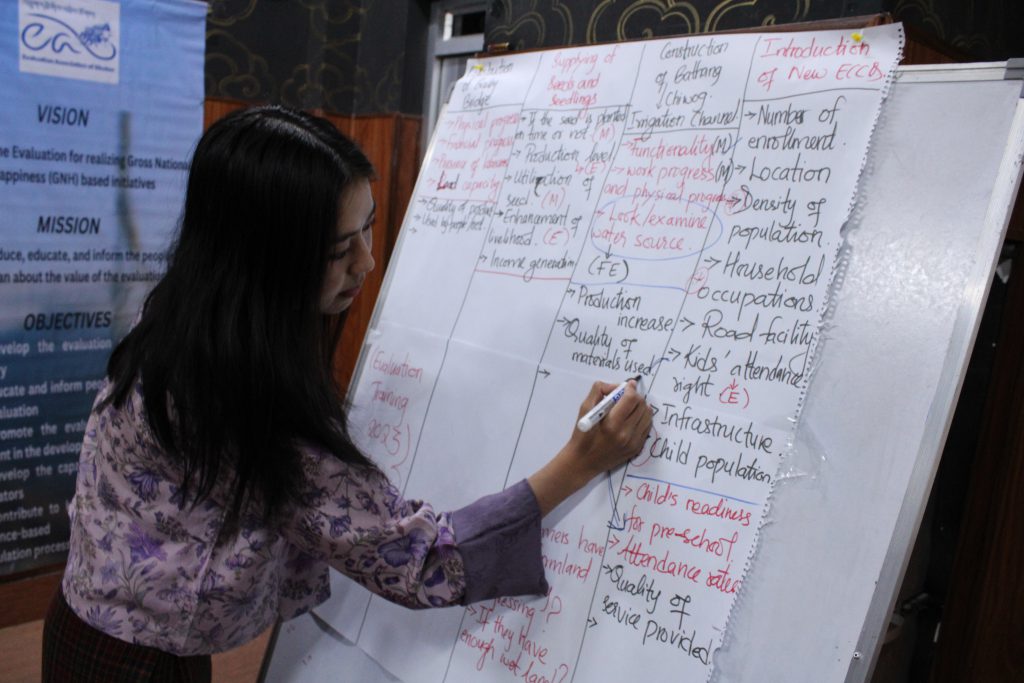 Evaluation Association of Bhutan
VISION
Evaluation for realizing Gross National
appiness (GNH) based initiatives
MISSION
duce, educate, and inform the people
an about the value of the evaluation
OBJECTIVES
velop the evaluation
ucate and inform people
aluation
omote the evalu
ent in the develop
evelop the cap
ators
ontribute to
ence-based
ulation process
Bridge
→ Physical progress
→ Financial progress
→ Load capacity
→ Quality of product
→ Used by people /not
→
Supplying of
Seeds and
Seedlings
→ If the seed is planted
on time or not (M)
→ Production level
(E)
→ Utilization of
seed. (M)
→ Enhancement of
livelihood. (E)
→ Income generation
Construction
of Bathang
Chiwog
Irrigation Channel
→ Functionality (M)
→ work progress (M)
and physical progress
→ Look/examine
water source.
(FE)
→ Production
increase
→ Quality of
materials used
→
Introduction
of New ECCD
→ Number of
enrollment.
→ Location
→ Density of
population.
→ Household
occupations
→ Road facility
→ Kids' attendance
right (E)
→ Infrastructure
Child population
→ Child's readiness
for pre-school.
→ Attendance rate
→ Quality of
service provided.
→
(Evaluation
Training
2023)
mers have
rmland
→ If they have
enough wet land?